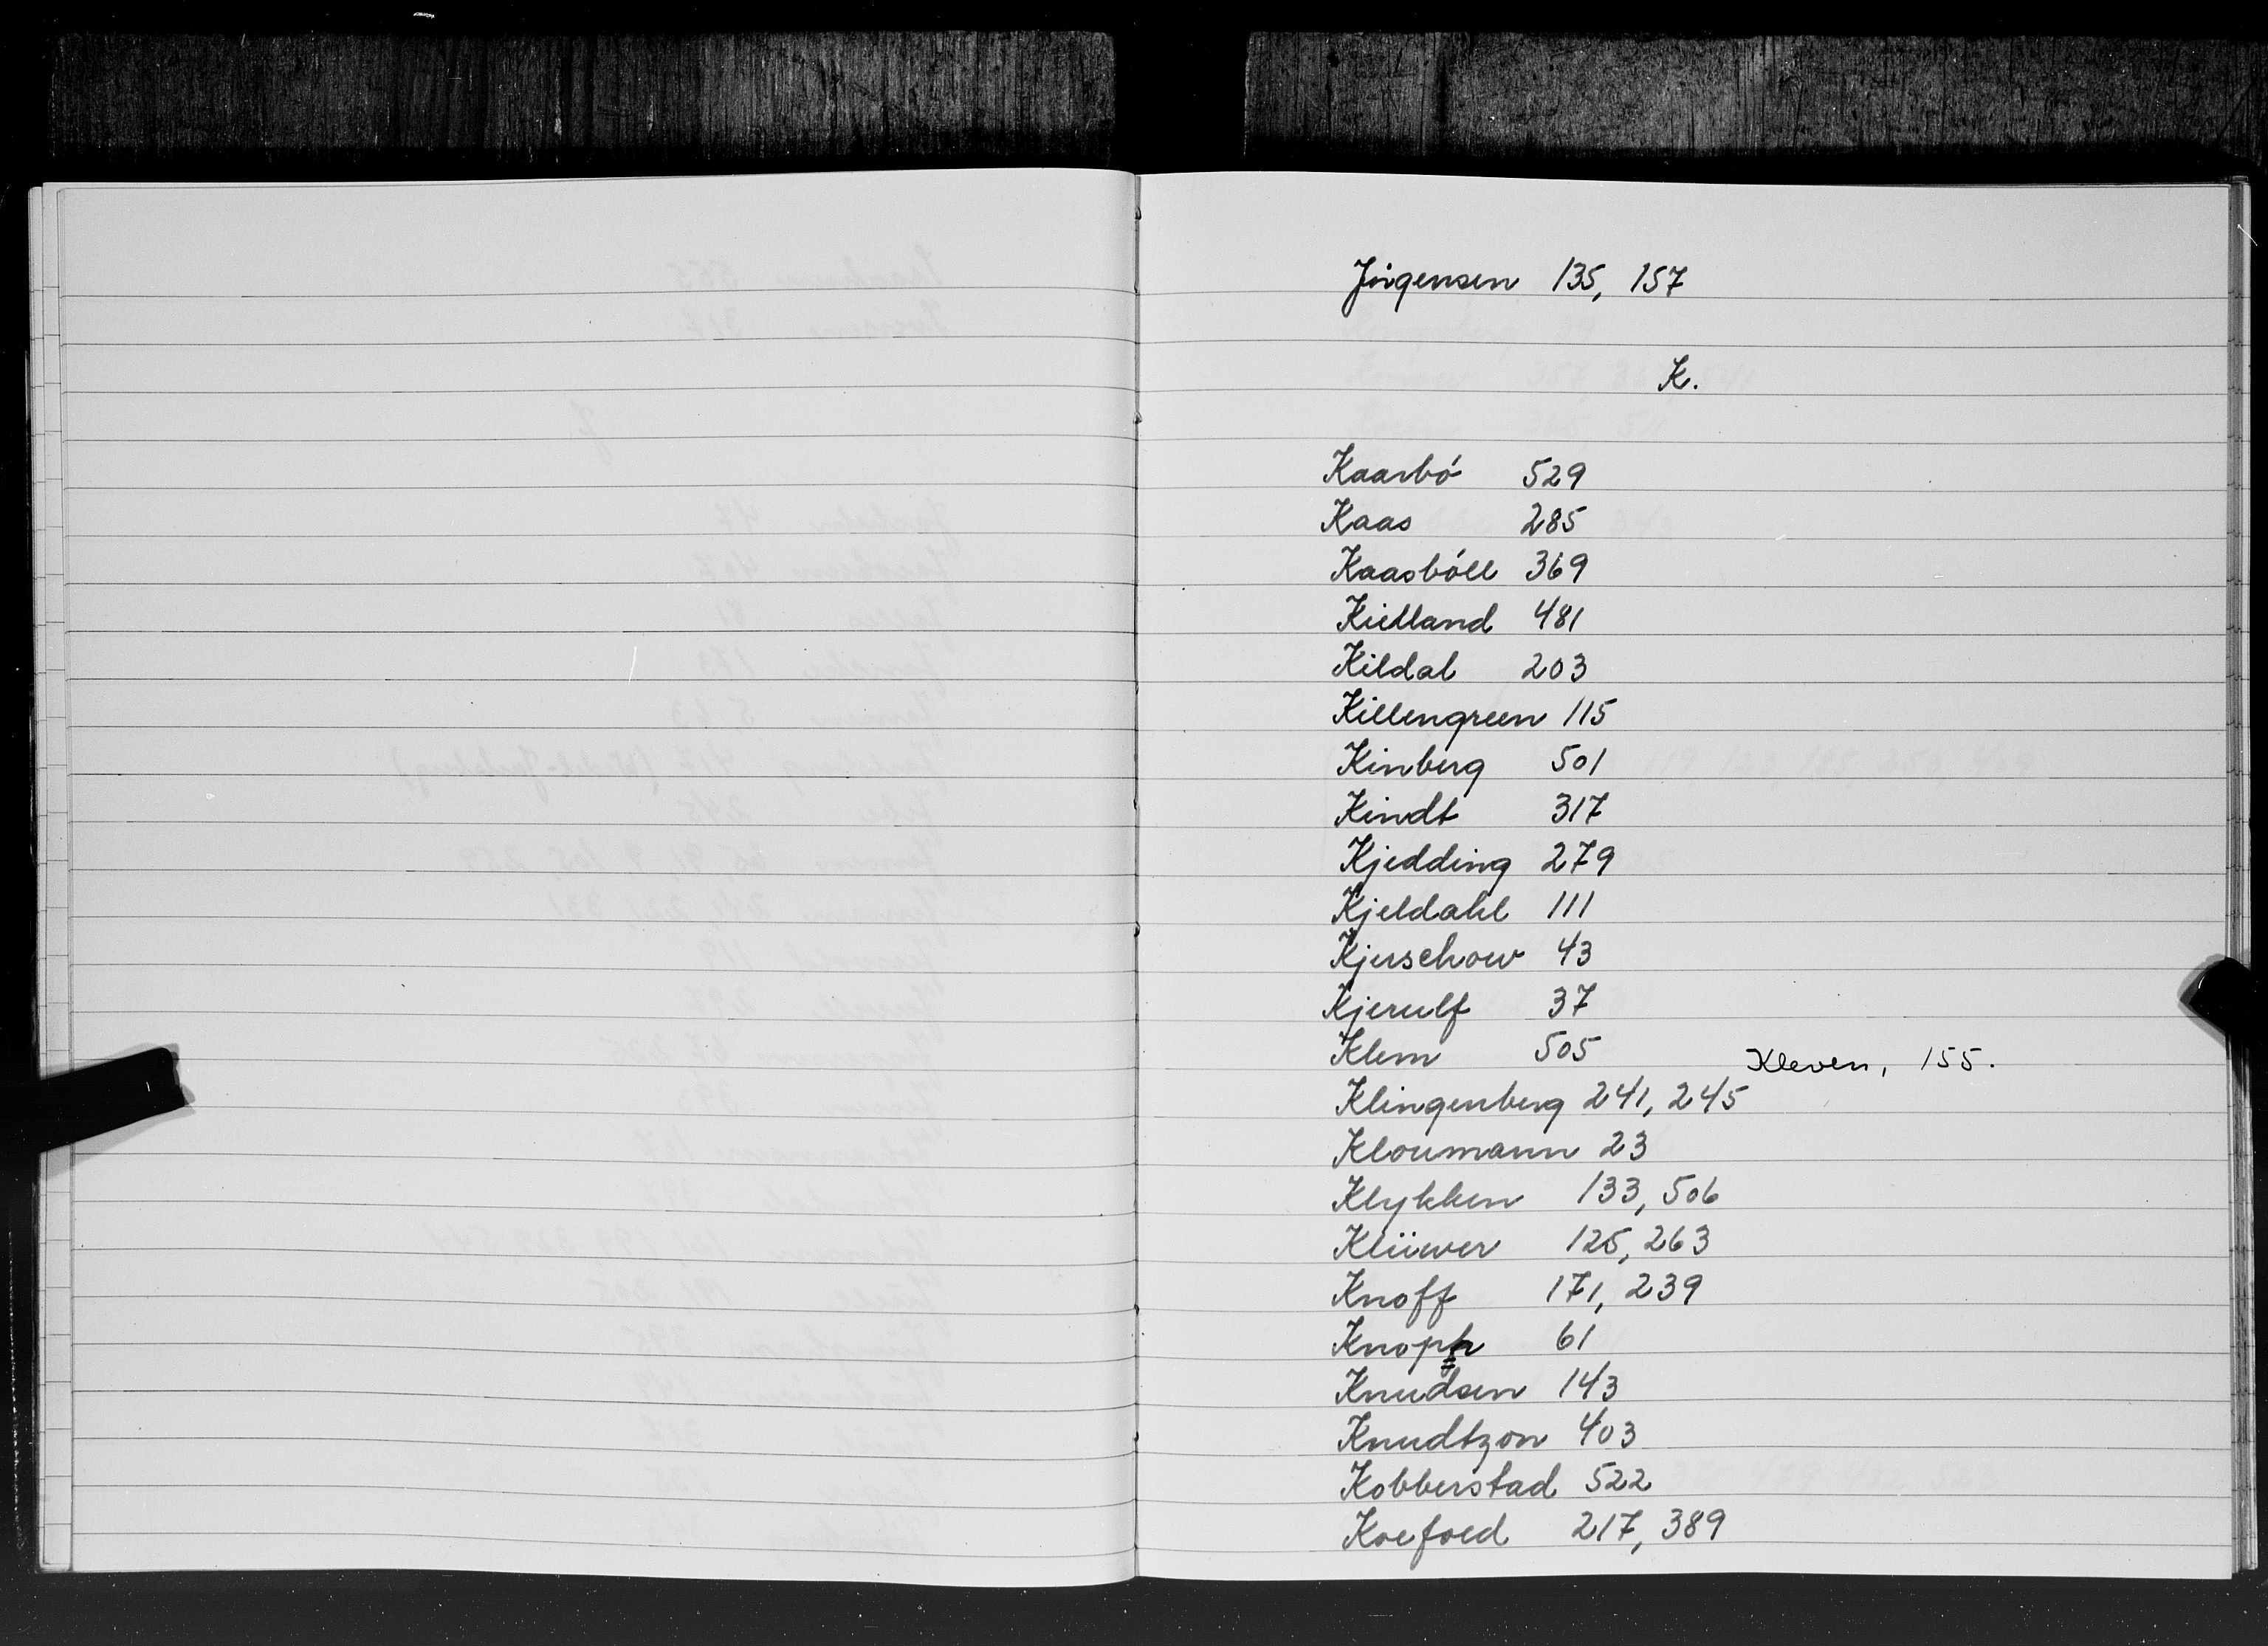 Jórgensen 135, 157
K.
Kaarbó 529
Kaas 285
Kaasbóll 369
Kielland 481
Kildal 203
Killengreen 115
Kinberg 501
Kindt 317
Kjedding 279
Kjeldahl 111
Kjerschow 43
Kjerulf 37
Klem 505
Kleven, 155.
Klingenberg 241, 245
Kloumann 23
Klykken 133, 506
Klüwer 125, 263
Knoff 171, 239
Knoph 61
Knudsen 143
Knudtzon 403
Kobberstad 522
Koefoed 217, 389